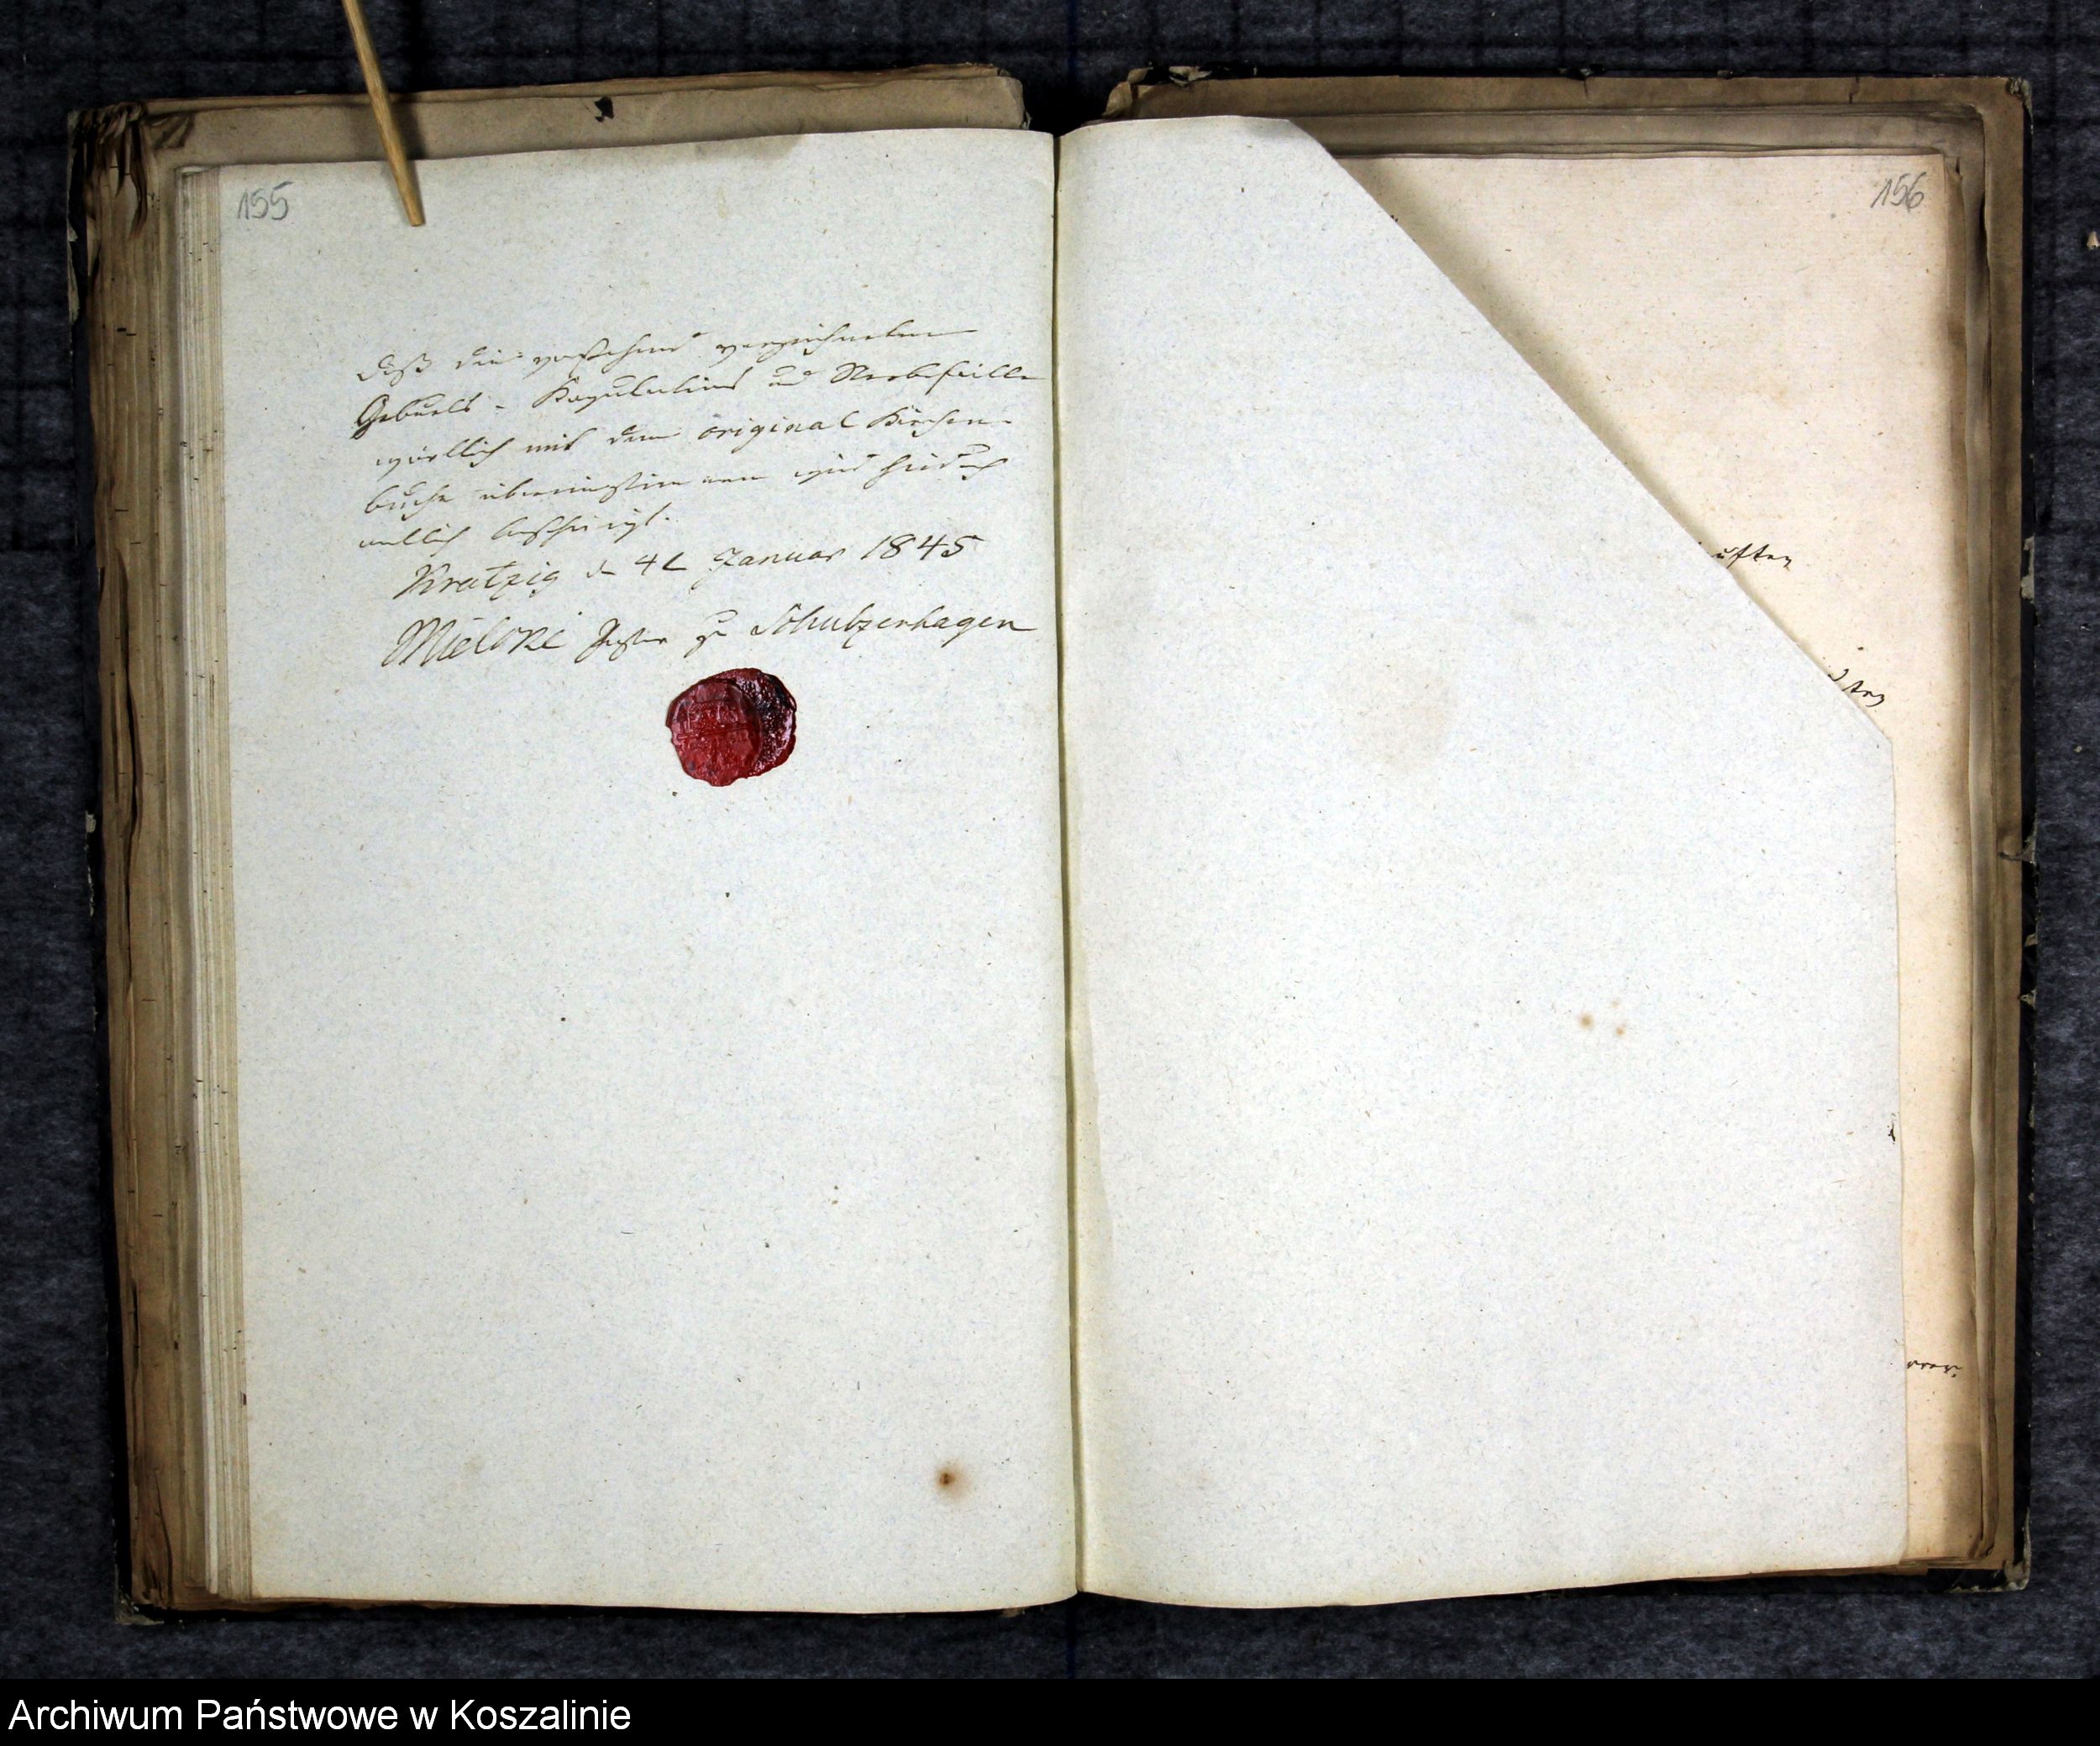 155
156
Daß die vorstehend verzeichneten
Geburts - Kopulations und Sterbefälle
wörtlich mit dem original Kirchen-
buche übereinstimmen wird hierdurch
amtlich bescheinigt.
Kratzig d 4t Januar 1845
Küster zu Schulzenhagen
Archiwum Państwowe w Koszalinie